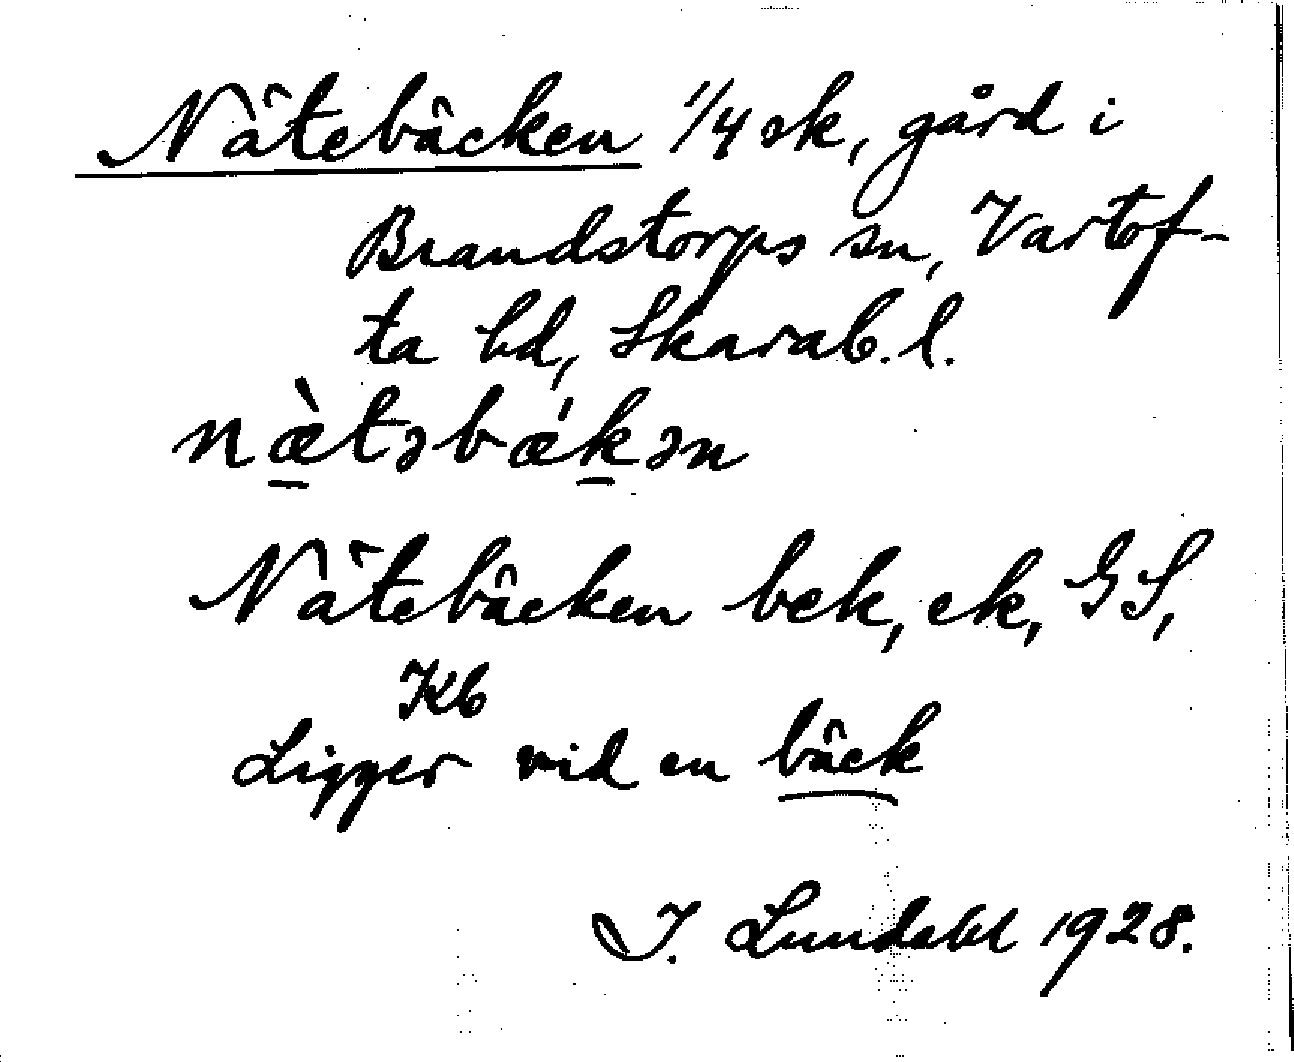 Nätebäcken 1/4 sk, gård i
Brandstorps sn, Vartof-
ta hd, Skarab. l.
næ̀təbækən
Nätebäcken bek, ek, GS,
Kb
Ligger vid en bäck
I. Lundahl 1928.